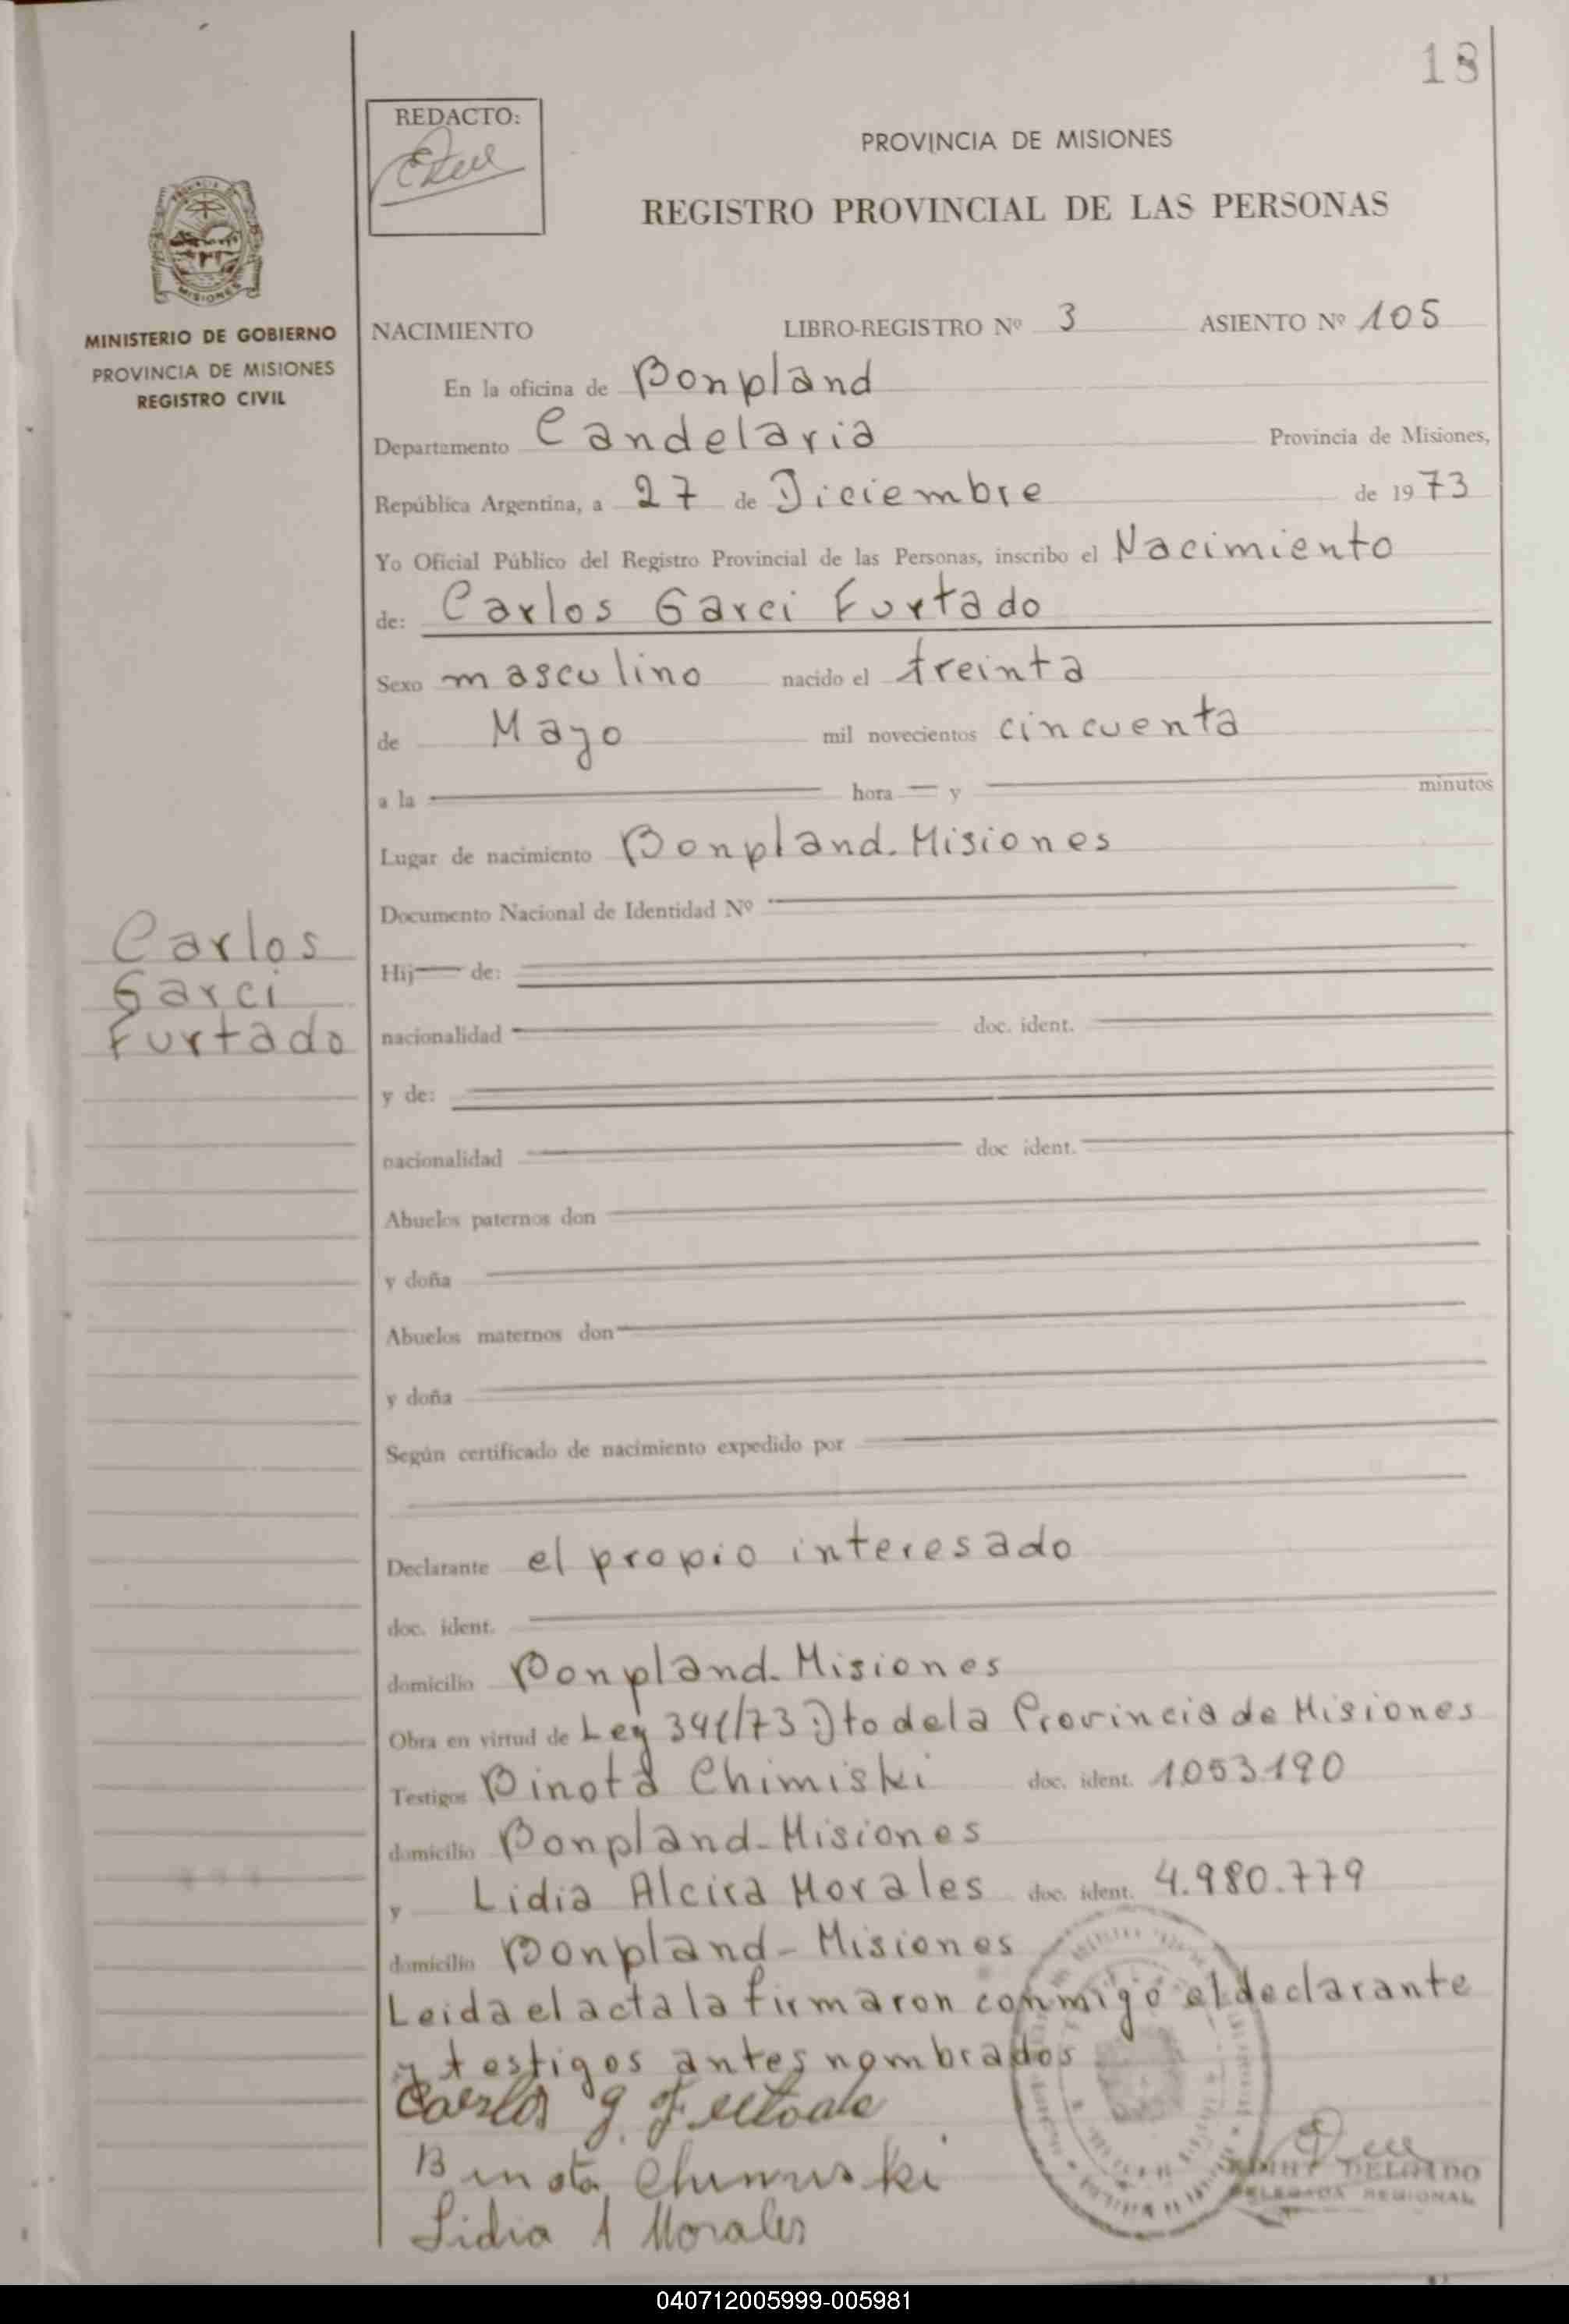 18
REDACTO:
PROVINCIA DE MISIONES
REGISTRO PROVINCIAL DE LAS PERSONAS
MISIONES
MINISTERIO DE GOBIERNO
PROVINCIA DE MISIONES
REGISTRO CIVIL
NACIMIENTO LIBRO-REGISTRO Nº 3 ASIENTO Nº 105
En la oficina de Bonpland
Departamento Candelaria Provincia de Misiones,
República Argentina, a 27 de Diciembre de 1973
Yo Oficial Público del Registro Provincial de las Personas, inscribo el Nacimiento
de: Carlos Garci Furtado
Sexo masculino nacido el treinta
de Mayo mil novecientos cincuenta
a la hora y minutos
Lugar de nacimiento Bonpland. Misiones
Documento Nacional de Identidad Nº
Carlos
Garci
Furtado
Hij de:
nacionalidad doc. ident.
y de:
nacionalidad doc ident.
Abuelos paternos don
y doña
Abuelos maternos don
y doña
Según certificado de nacimiento expedido por
Declarante el propio interesado
doc. ident.
domicilio Bonpland. Misiones
Obra en virtud de Ley 391/73 Dto de la Provincia de Misiones
Testigos Binota Chimiski doc. ident. 1053.190
domicilio Bonpland - Misiones
y Lidia Alcira Morales doc. ident. 4.980.779
domicilio Bonpland - Misiones
Leida el acta la firmaron conmigo el declarante
y testigos antes nombrados
Carlos g. Furtado
Binota Chimiski
Lidia A Morales
DELGADO
DELEGADA REGIONAL
040712005999-005981